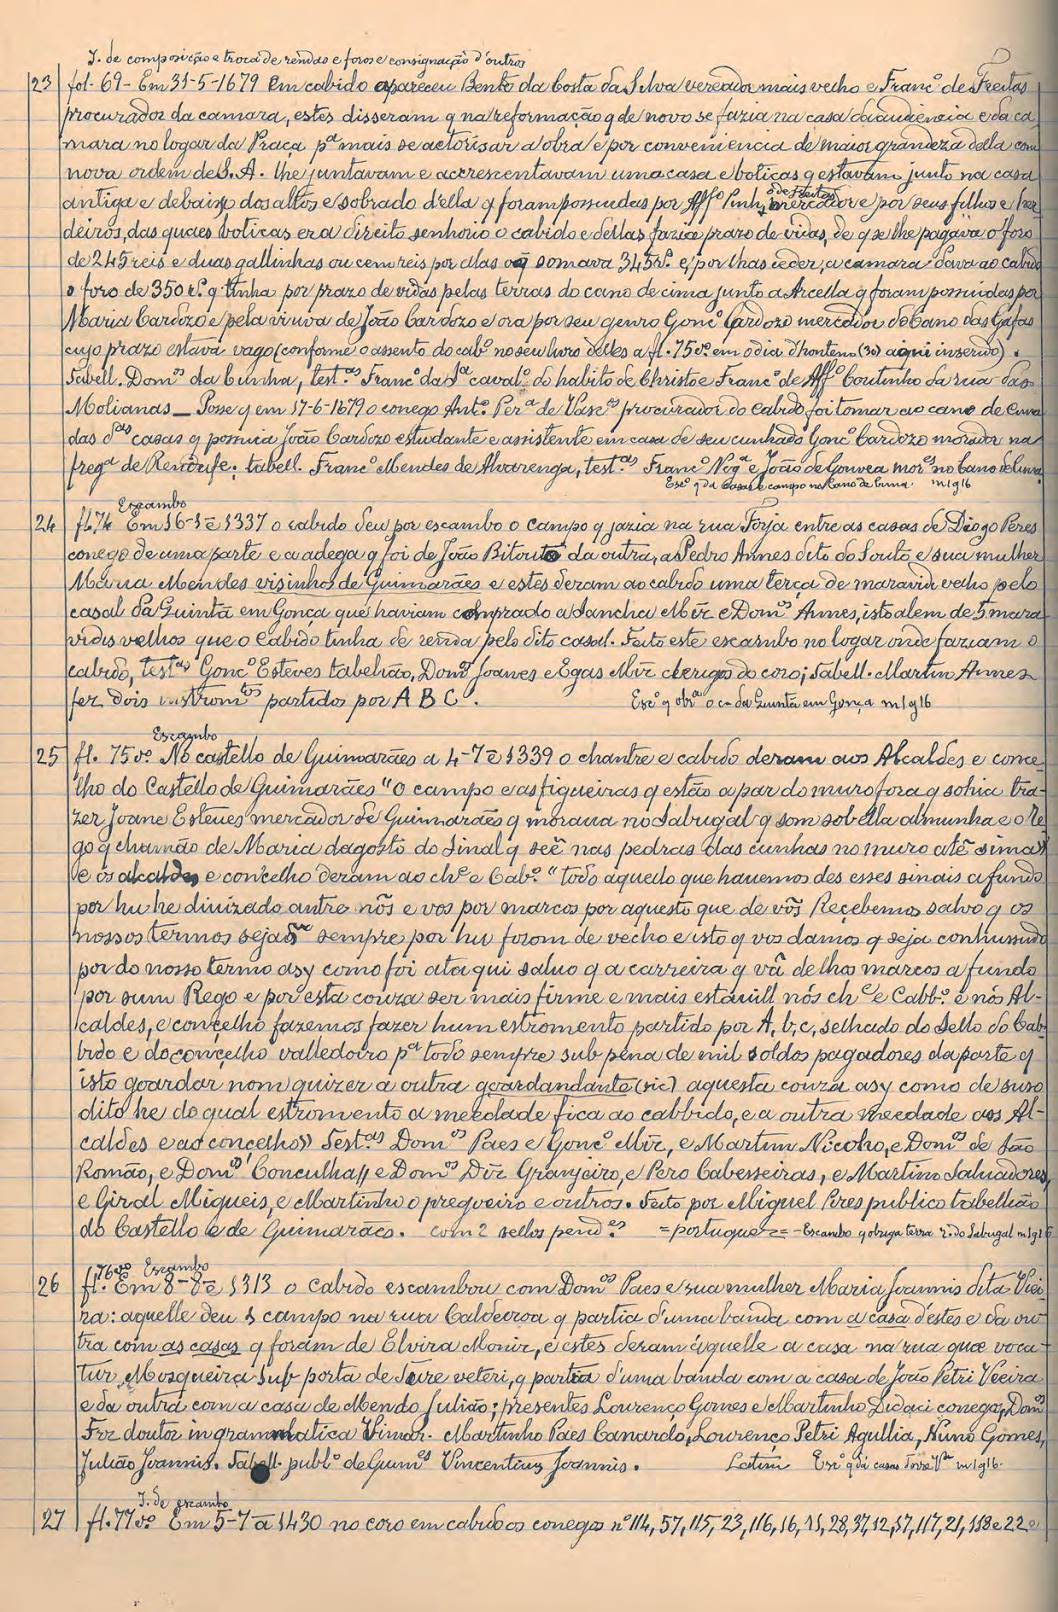 J. de composição e troca de rendas e foros e consignação d'outros
23 fol. 69 - Em 31-5-1679 em cabido apareceu Bento da Costa da Silva vereador mais velho e Francº de Freitas
procurador da camara, estes disseram q na reformação q de novo se fazia na casa da audiencia e da ca-
mara no logar da Praça pª mais se actorisar a obra e por conveniencia de maior grandeza della com
nova ordem de S. A. lhe juntavam e accrescentavam uma casa e boticas q estavam junto na casa
antiga e debaixo dos altos e sobrado d'ella q foram possuidas por Affº Pinhº mercador e por seus filhos e her-
deiros, das quaes boticas era direito senhorio o cabido e dellas fazia prazo de vidas, de q se lhe pagava o foro
de 245 reis e duas gallinhas ou cem reis por ellas q somava 345 rs. e, por lhas ceder, a camara dava ao cabido
o foro de 350 rs. q tinha por prazo de vidas pelas terras do cano de cima junto a Arcella q foram possuidas por
Maria Cardozo e pela viuva de João Cardozo e ora por seu genro Goncº Cardozo mercador do Cano das Gafas
cujo prazo estava vago (conforme o assento do cabº no seu livro delles a fl. 75vº em o dia d'hontem (30) aqui inserido).
Tabell. Domºs da Cunha, testªs Francº da Sª cavalº do habito de Christo e Francº de Affº Coutinho da rua das
Molianas _ Posse q em 17-6-1679 o conego Antº Perª de Vascºs procurador do Cabido foi tomar ao cano de Cima
das dªs casas q possuia João Cardozo estudante e assistente em casa de seu cunhado Goncº Cardozo morador na
fregª de Rendufe; tabell. Francº Mendes de Alvarenga, testªs Francº Nogª e João de Gouvea morºs no Cano de Cima.
Escº q da casas e campo no Cano de Cima. m1g16
Escambo
24 fl. 74 Em 16-1-ē 1337 o cabido deu por escambo o campo q jazia na rua Forja entre as casas de Diogo Peres
conego de uma parte e a adega q foi de João Bitouto da outra, a Pedro Annes dito do Souto e sua mulher
Maria Mendes visinhos de Guimarães e estes deram ao cabido uma terça de maravidi velho pelo
casal da Quintã em Gonça que haviam comprado a Sancha Miz e Domºs Annes, isto alem de 5 mara-
vidis velhos que o Cabido tinha de renda pelo dito casal. Feito este escambo no logar onde faziam o
cabido, testªs Goncº Esteves tabelião, Domºs Joannes e Egas Miz clerigos do coro; Tabell. Martin Annes
fez dois instromtos partidos por A B C. Escº q obrª o c. da Quintã em Gonça m1g16
Escambo
25 fl. 75vº No castello de Guimarães a 4-7-ē 1339 o chantre e cabido deram aos Alcaldes e conce-
lho do Castello de Guimarães "o campo e as figueiras q estão a par do muro fora q sohia tra-
zer Joane Esteues mercador de Guimarães q moraua no Sabugal q som sob ella almunha e o Re-
go q chamão de Maria dagosto do Sinal q seẽ nas pedras das cunhas no muro atẽ sima"
e os alcaldes e concelho deram ao chᵉ e Cabº. "todo aquello que hauemos des esses sinais a fundo
por hu he diuizado antre nõs e vos por marcos por aquesto que de võs Reçebemos saluo q os
nossos termos sejão sempre por hu forom de vecho e isto q vos damos q seja conhussudo
por do nosso termo asy como foi ata qui saluo q a carreira q vã de lhos marcos a fundo
por sum Rego e por esta couza ser mais firme e mais estauill nós chᵉ e Cabbº. e nós Al-
caldes, e conçelho fazemos fazer hum estromento partido por A, b, c, selhado do Sello do Cab-
bido e do conçelho valledoiro pª todo sempre sub pena de mil soldos pagadores da parte q
isto goardar nom quizer a outra goardandante (sic) aquesta couza asy como de suso
dito he do qual estromento a meedade fica ao cabbido, e a outra meedade aos Al-
caldes e ao concelho" Testªs Domºs Paes e Goncº Miz, e Martim Nicolao, e Domºs de São
Romão, e Domºs Conculha, e Domºs Diz Granjeiro, e Pero Cabesseiras, e Martim Saluadores,
e Giral Migueis, e Martinho o pregoeiro e outros. Feito por Miguel Pires publico tabellião
do Castello e de Guimarães. com 2 sellos pendᵉs =portuguez= - Escambo q obriga terra r. do Sabugal m1g16
Escambo
26 fl. 76vº Em 8-8-ē 1313 o cabido escambou com Domºs Paes e sua mulher Maria Joannis dita Viei-
ra: aquelle deu 1 campo na rua Caldeiroa q partia d'uma banda com a casa d'estes e da ou-
tra com as casas q foram de Elvira Moniz, e estes deram áquelle a casa na rua quæ voca-
tur Mosqueira sub porta de Turre veteri, q partia d'uma banda com a casa de João Petri Vieira
e da outra com a casa de Mendo Julião; presentes Lourenço Gomes e Martinho Didaci conegos, Domºs
Frz doutor in grammatica Vimar. Martinho Paes Canardo, Lourenço Petri Agullia, Nuno Gomes,
Julião Joannis. Tabell. publº de Guimºs Vincentius Joannis. Latim Escº q dá casas Torre Vª m1g16.
J. de escambo
27 fl. 77vº Em 5-7-a 1430 no coro em cabido os conegos nº 114, 57, 115, 23, 116, 16, 11, 28, 37, 12, 17, 117, 21, 118 e 22 e